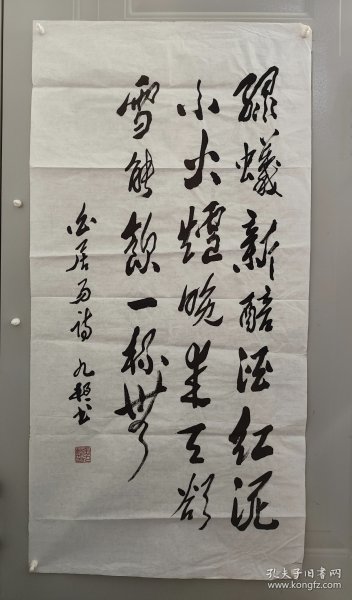 綠蟻新醅酒紅泥
小火爐晚来天欲
雪能飲一杯無
白居易诗 九 书
孔夫子旧书网
www.kongfz.com